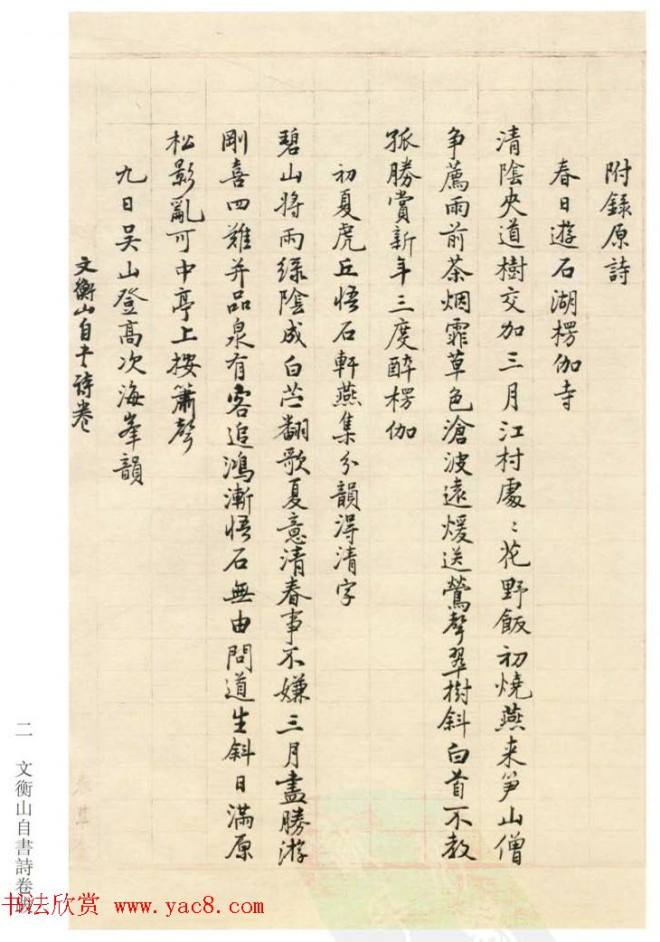 附錄原詩
春日遊石湖楞伽寺
清陰夾道樹交加三月江村處〻花野飯初燒燕来笋山僧
争薦雨前茶烟霏草色滄波遠煖送鶯聲翠樹斜白首不教
孤勝賞新年三度醉楞伽
初夏虎丘悟石軒燕集分韻得清字
碧山將雨緑陰成白苎翻歌夏意清春事不嫌三月盡勝游
剛喜四難并品泉有客追鴻漸悟石無由問道生斜日滿原
松影亂可中亭上按簫聲
九日吴山登高次海峯韻
文衡山自书詩卷
二 文衡山自書詩卷跋
书法欣赏 www.yac8.com